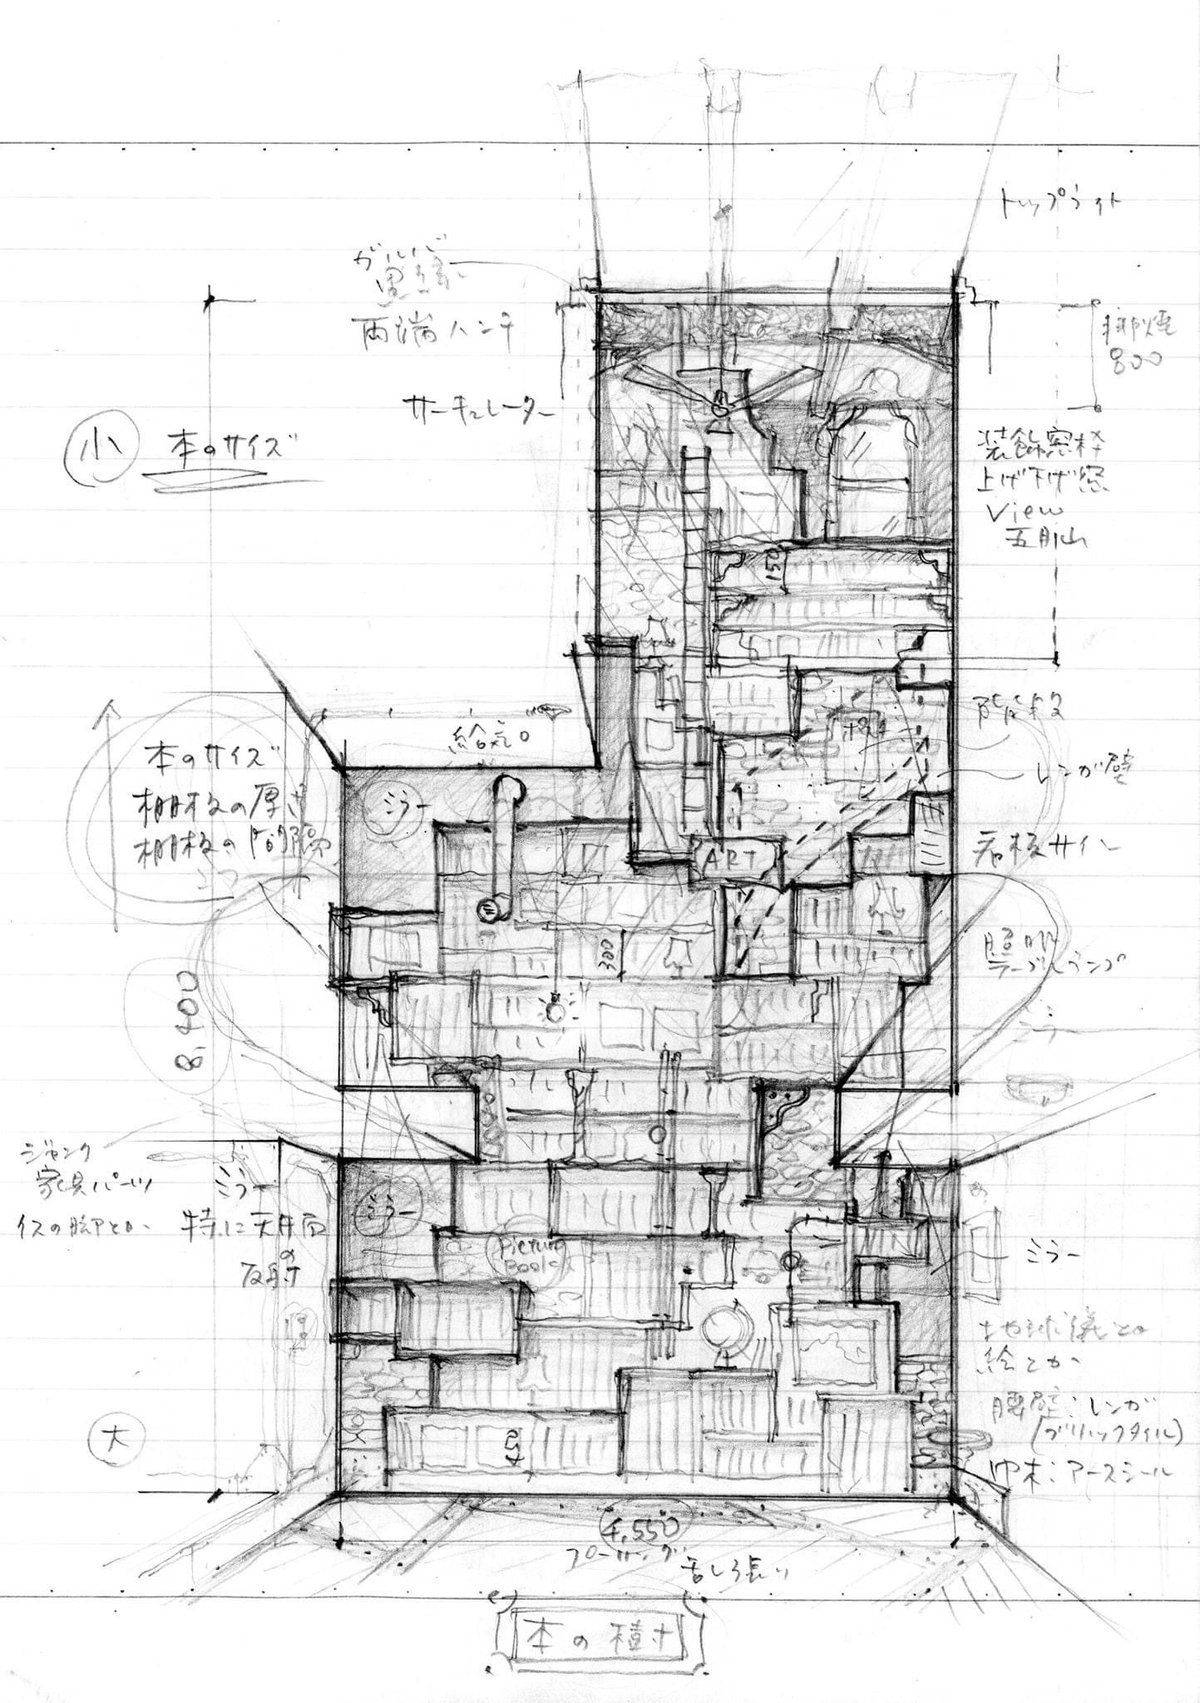 トップライト
ガルバ
両端ハンチ
排煙
800
サーキュレーター
小
本のサイズ
装飾窓枠
上げ下げ窓
View
五月山
150
階段
給気口
本のサイズ
棚板の厚さ
棚板の間隔
ミラー
レンガ壁
看板サイン
ART
300
照明
テーブルランプ
8,400
ミラー
ジャンク
家具パーツ
イスの脚とか
ミラー
特に天井面
の
反射
ミラー
Picture
Book
ミラー
地球儀とか
絵とか
腰壁:レンガ
(ブリックタイル)
巾木:アースシール
大
450
4,550
フローリング
本の積